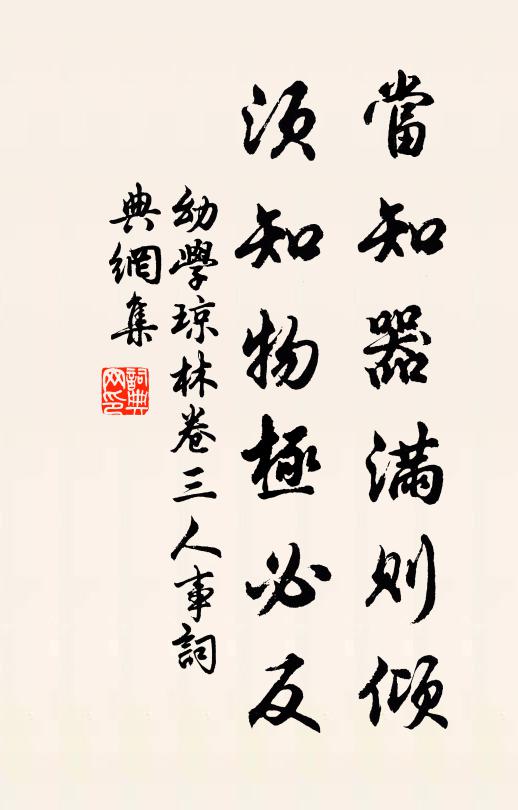 當知器滿則傾
須知物極必反
幼學琼林卷三人事詞
典網集
詞典網印